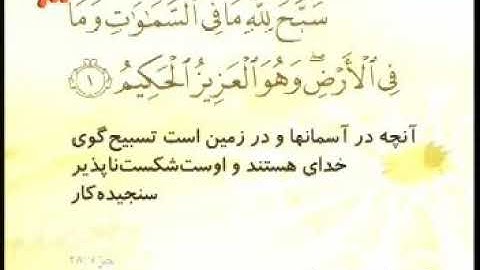 سَبَّحَ لِلَّهِ مَا فِي السَّمَٰوَٰتِ وَمَا
فِي الْأَرْضِ ۖ وَهُوَ الْعَزِيزُ الْحَكِيمُ ۝١
آنچه در آسمانها و در زمین است تسبیح‌گوی
خدای هستند و اوست‌شکست‌ناپذیر
سنجیده‌کار